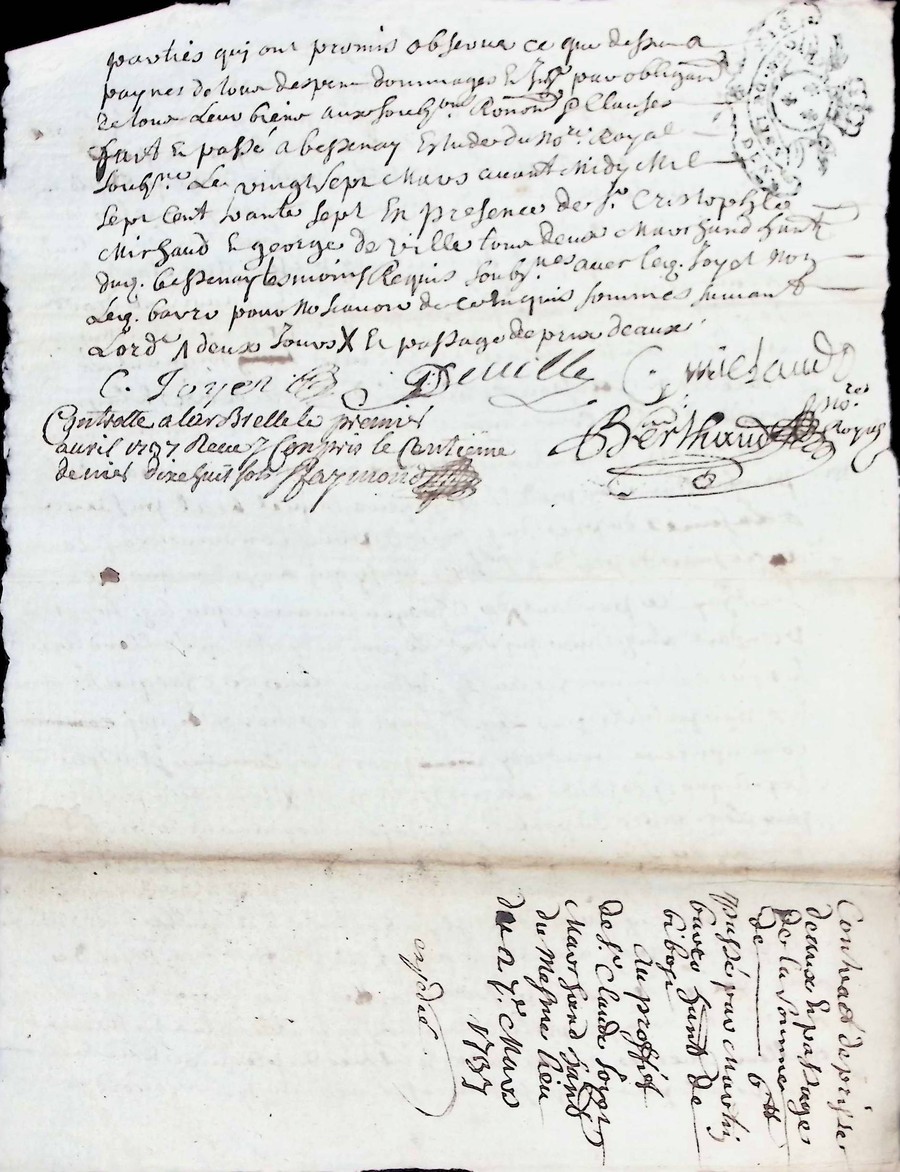 parties qui ont promis observer ce que dessus a
paynes de tous despens dommages & par obliga
de tous leur biens aux soubz. Renon. & Clauses
fait et passé a bessenay Estude du No.re Royal
soubz.né Le vingt sept Mars avant Midy Mil
sept Cent trante sept En presence de S.r Cristophle
Michaud & george de ville tous deux Marchand
dud. bessenay tesmoins Requis soubz.nes avec led. Joyet Non
Led. pour No scavoir de ce Enquis sommes suivant
Lord.e deux Jours X Et passage de prix deaux
C. Joyet Deville C. Michaud
Berthaud No.re Royal
Controlle a larBrelle le premier
avril 1737 Receu Compris le Centieme
denier dixe huit sols Raymond
Contract de prise
deaux Et passage
de la somme
de — 6 tt
passé par
de
Au proffit
de S.r Claude Joyet
Marchand
du Mesme lieu
du 27.e Mars
1737
expedié